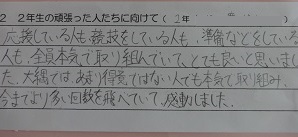 2 2年生の頑張った人たちに向けて(2年
応援している人も、競技をしている人も、準備などをしている
人も、全員本気で取り組んでいて、とても良いと思いました
た。大縄では、あまり得意ではない人でも本気で取り組み、
今までより多い回数を飛べていて、感動しました。